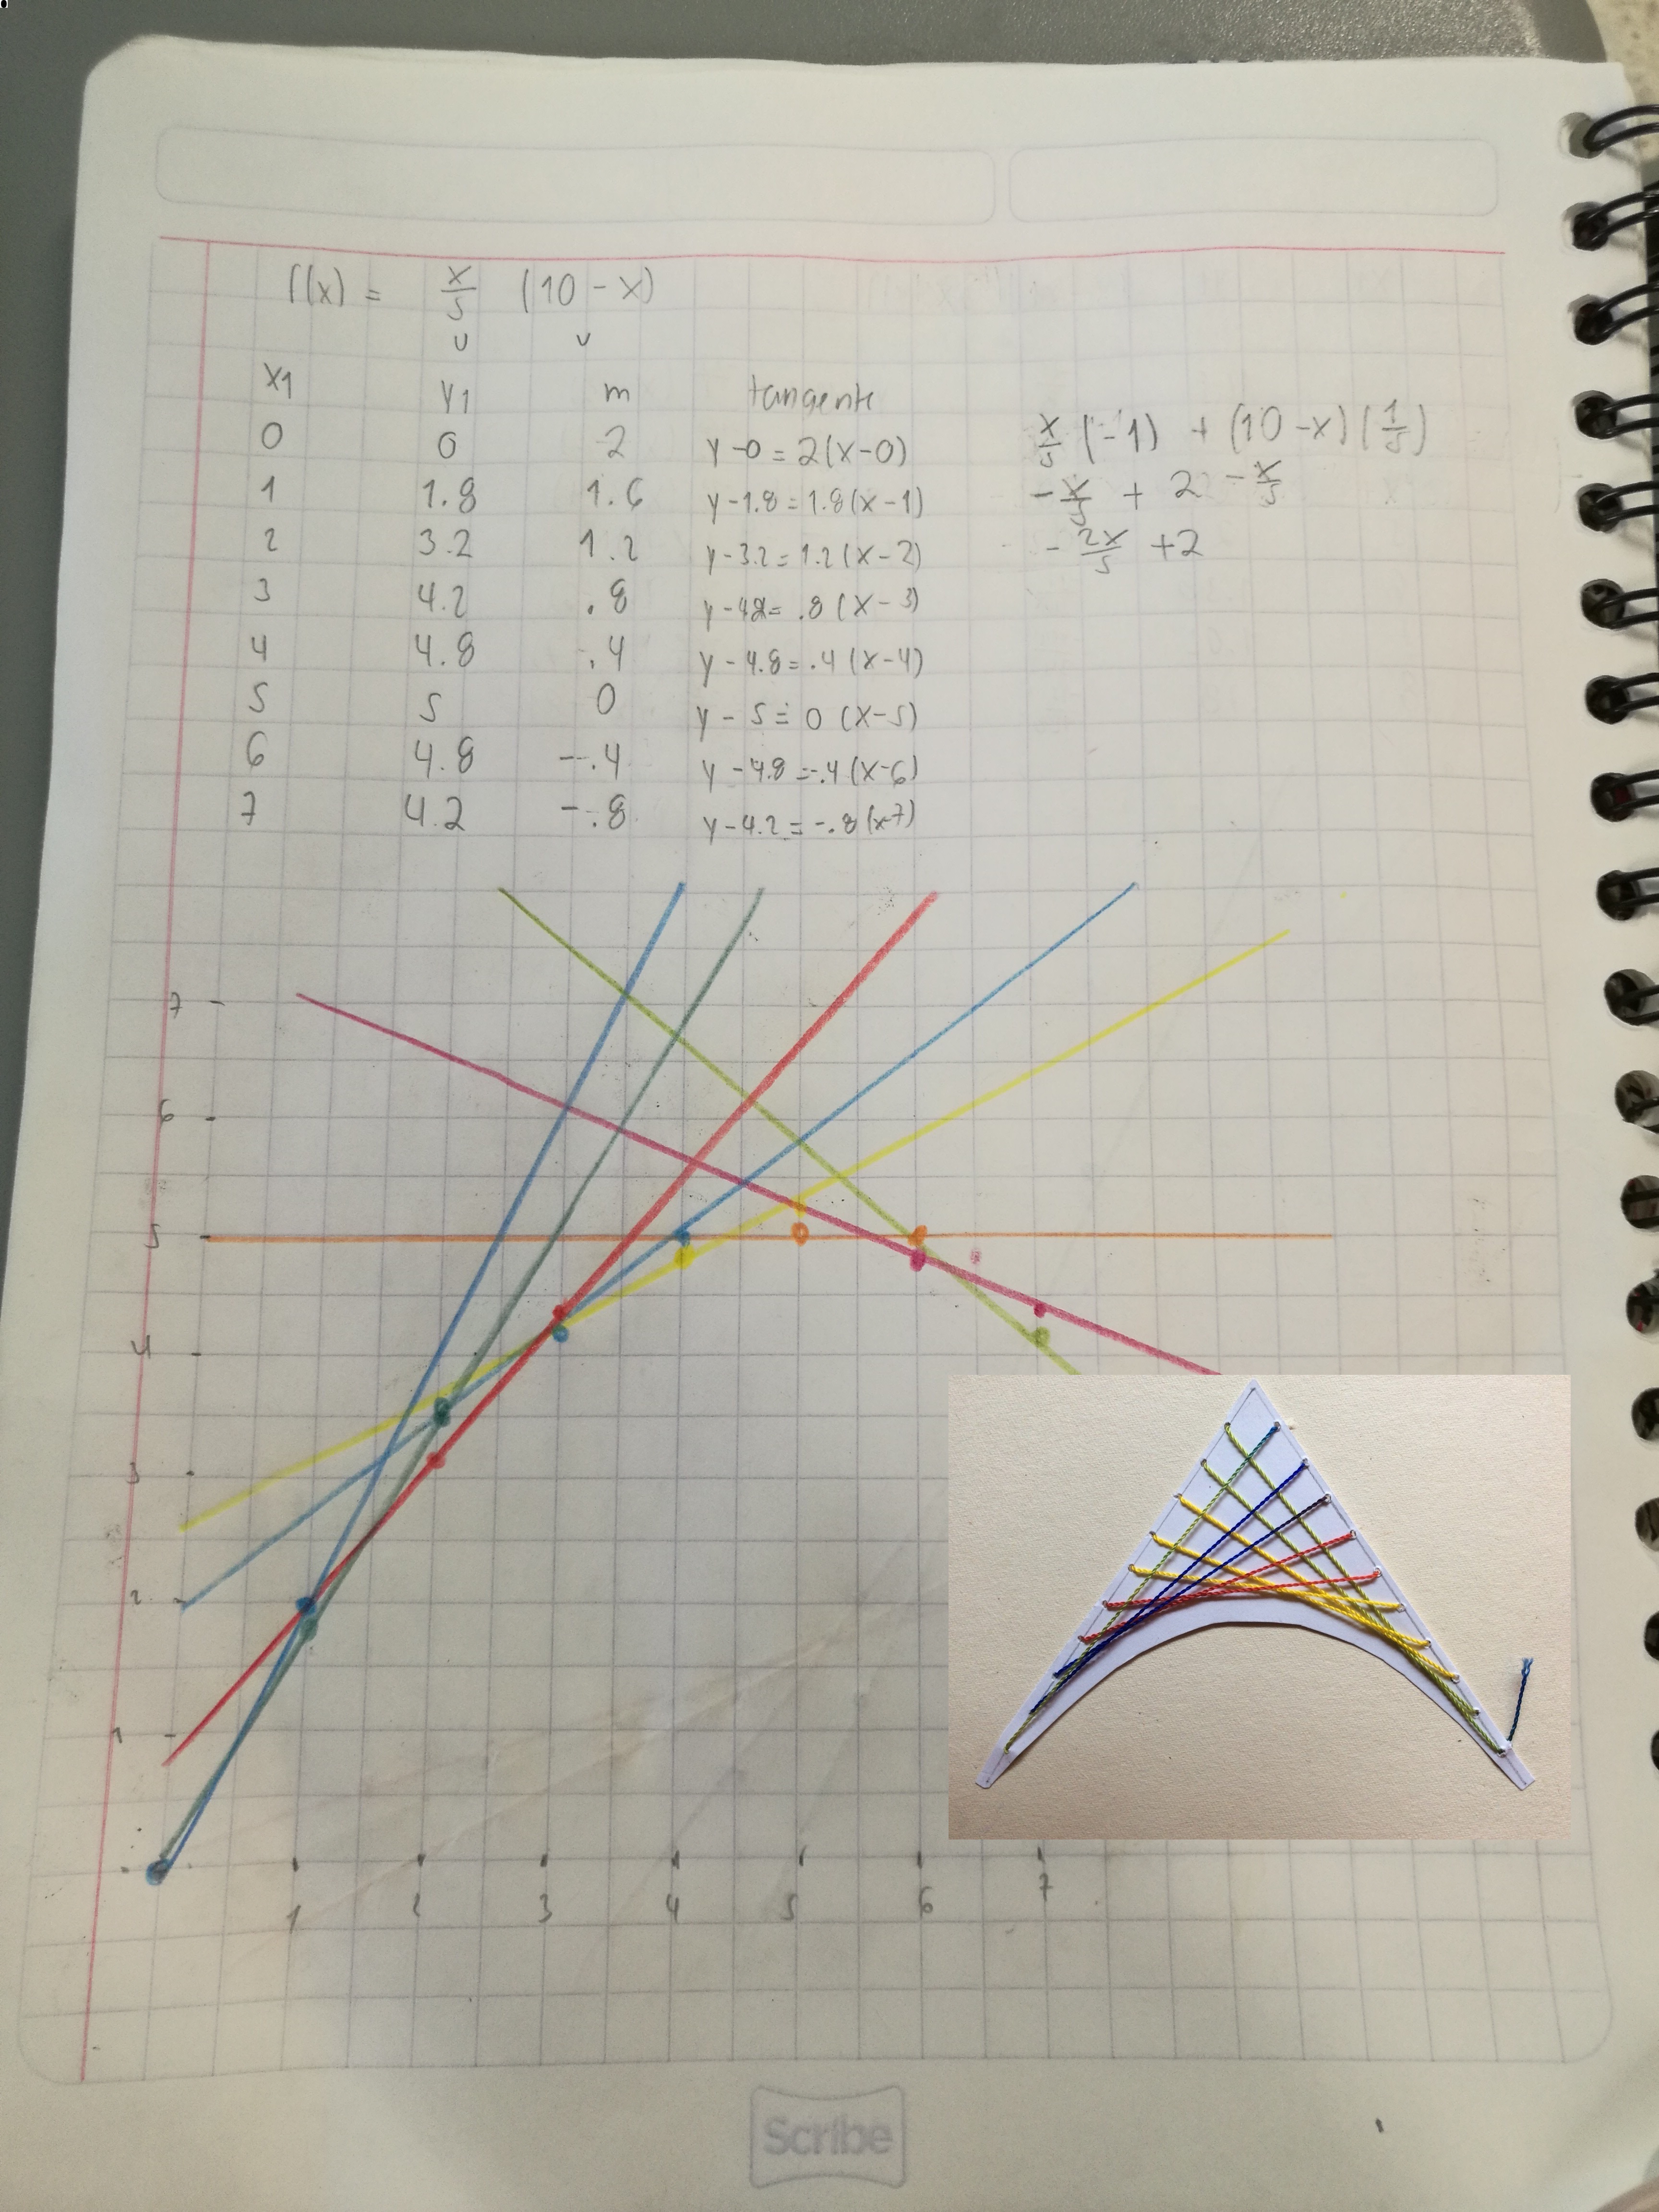 f(x) = x/5 (10 - x)
u v
x1 y1 m tangente
0 0 2 y-0=2(x-0) x/5 (-1) + (10-x)(1/5)
1 1.8 1.6 y-1.8=1.8(x-1) -x/5 + 2 -x/5
2 3.2 1.2 y-3.2=1.2(x-2) -2x/5 +2
3 4.2 .8 y-42=.8(x-3)
4 4.8 .4 y-4.8=.4(x-4)
5 5 0 y-5=0(x-5)
6 4.8 -.4 y-4.8=-.4(x-6)
7 4.2 -.8 y-4.2=-.8(x-7)
7
6
5
4
3
2
1
1 2 3 4 5 6 7
Scribe